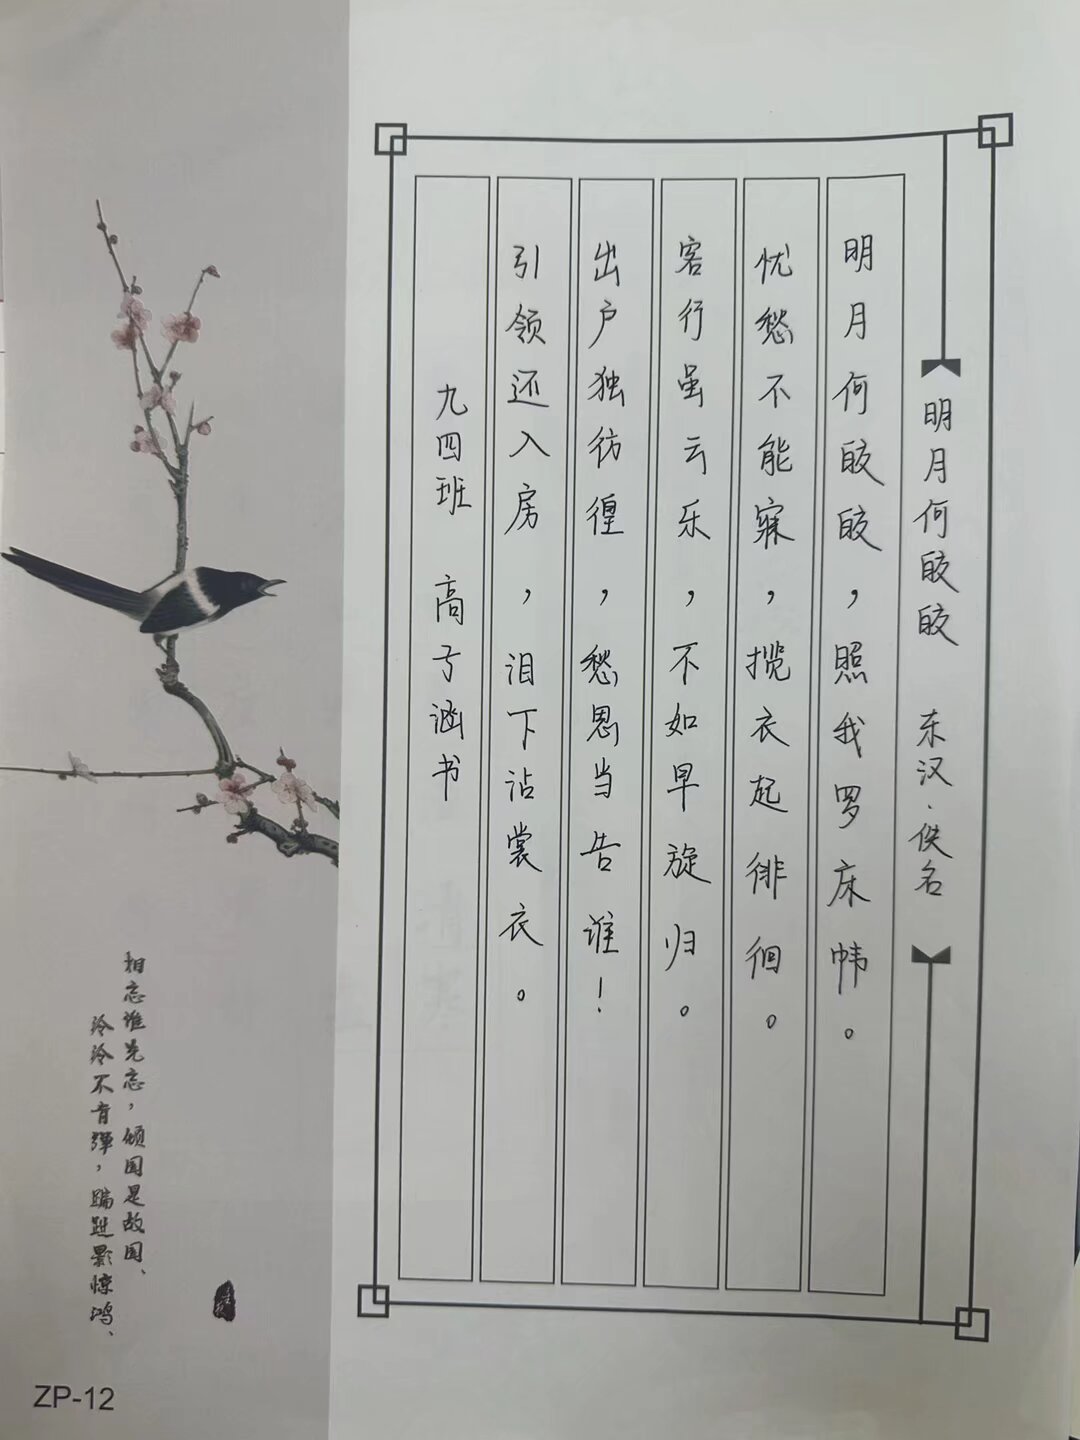 明月何皎皎 东汉·佚名
明月何皎皎，照我罗床帏。
忧愁不能寐，揽衣起徘徊。
客行虽云乐，不如早旋归。
出户独彷徨，愁思当告谁！
引领还入房，泪下沾裳衣。
九四班 高子涵书
相忘谁先忘，倾国是故国、
泠泠不音弹，蹁跹影惊鸿、
ZP-12